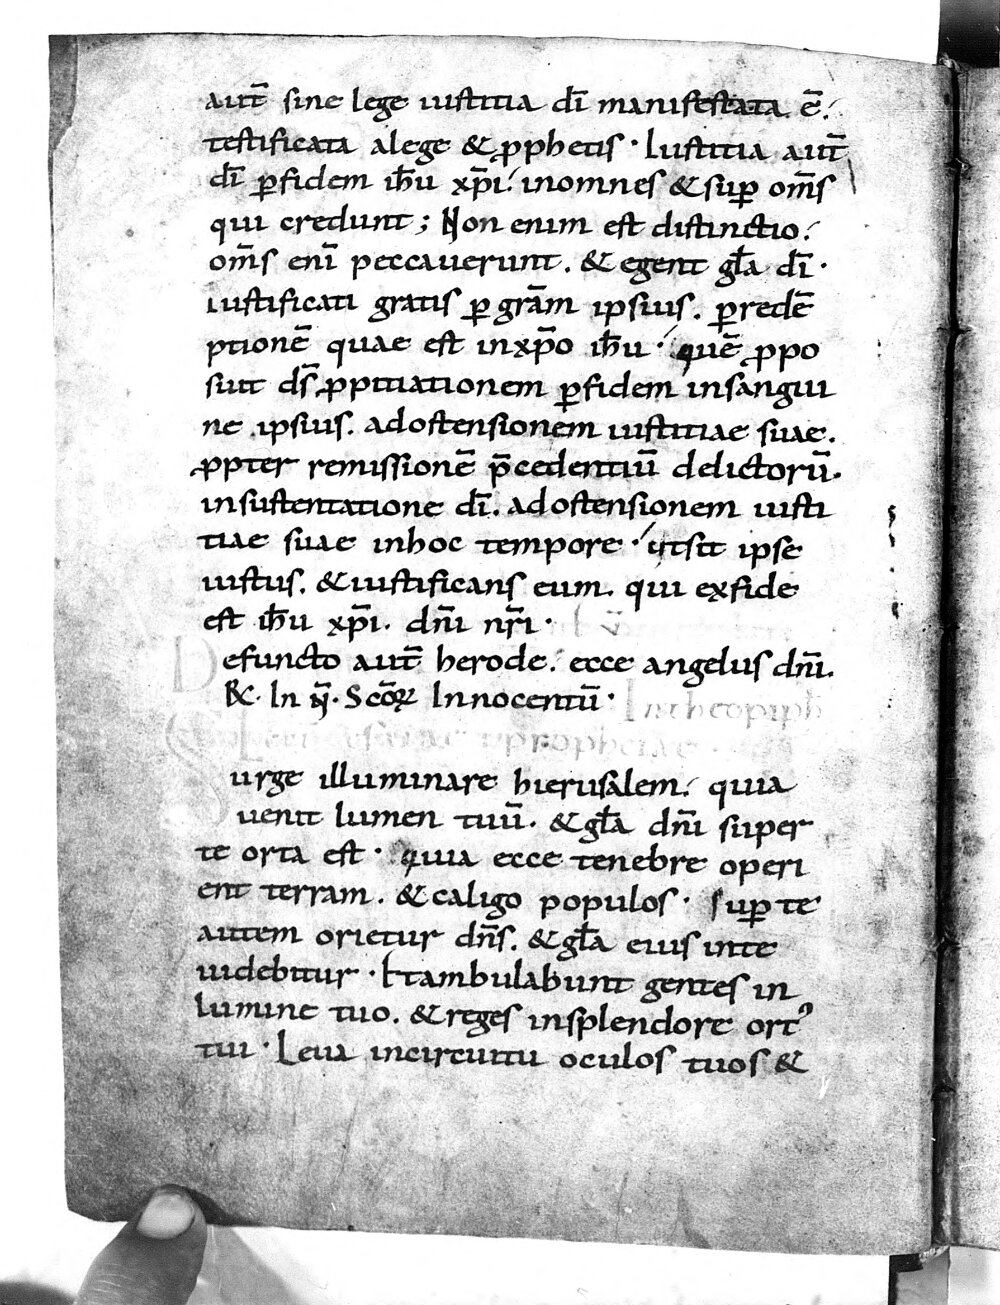 aut̄ sine lege iustitia dī manifestata ē.
testificata alege & ꝓphetis · Iustitia aut̄
dī ꝑfidem ih̄u xp̄i. inomnes & suꝑ om̄s
qui credunt; Non enim est distinctio.
om̄s enī peccauerunt. & egent gl̄a dī·
iustificati gratis ꝑ grām ipsius. ꝑredē
ptionē quae est inxp̄o ih̄u · quē ꝓpo
suit ds̄ ꝓpitiationem ꝑfidem insangui
ne ipsius. adostensionem iustitiae suae.
ꝓpter remissionē p̄cedentiū delictorū.
insustentatione dī. adostensionem iusti
tiae suae inhoc tempore · utsit ipse
iustus. & iustificans eum. qui exfide
est ih̄u xp̄i. dn̄i nr̄i ·
Defuncto aut̄ herode. ecce angelus dn̄i.
&. In Scōꝝ Innocentū · In theopiph
Surge illuminare hierusalem. quia
uenit lumen tuū. & gl̄a dn̄i super
te orta est · quia ecce tenebre operi
ent terram. & caligo populos · suꝑ te
autem orietur dn̄s. & gl̄a eius inte
uidebitur · Etambulabunt gentes in
lumine tuo. & reges insplendore ortꝰ
tui · Leua incircuitu oculos tuos &